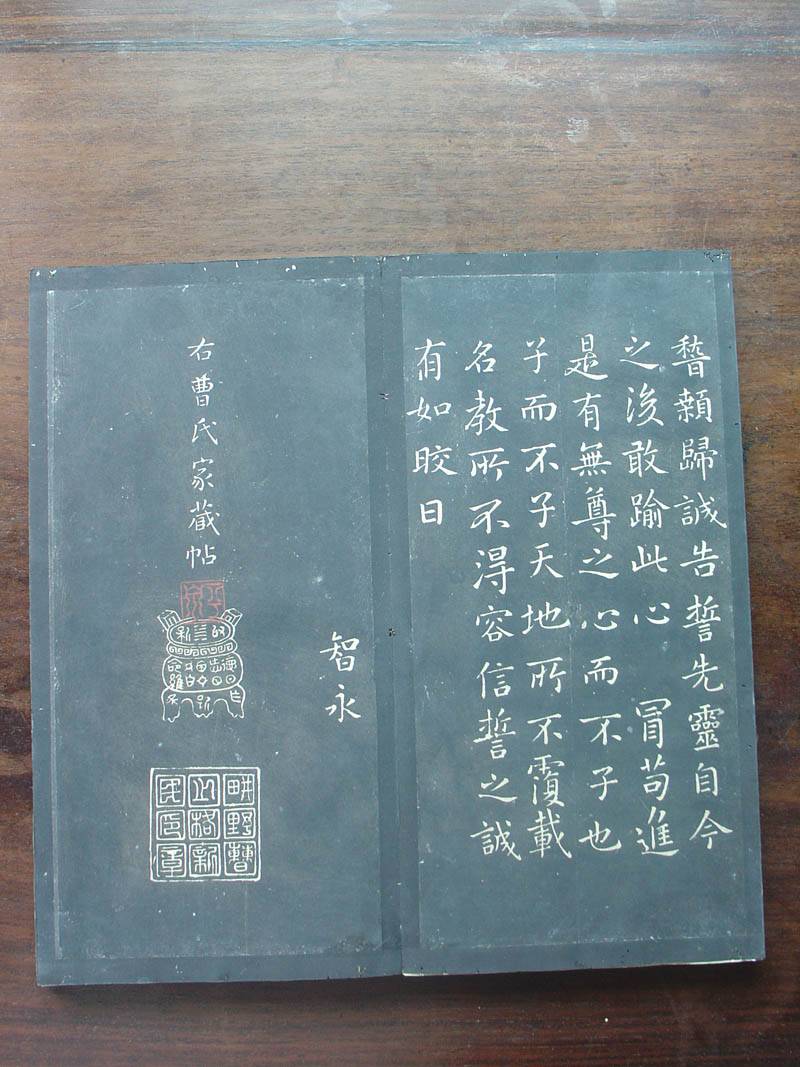 稽顙歸誠告誓先靈自今
之後敢踰此心 冒苟進
是有無尊之心而不子也
子而不子天地所不覆載
名教所不得容信誓之誠
有如晈日
智永
右曹氏家藏帖